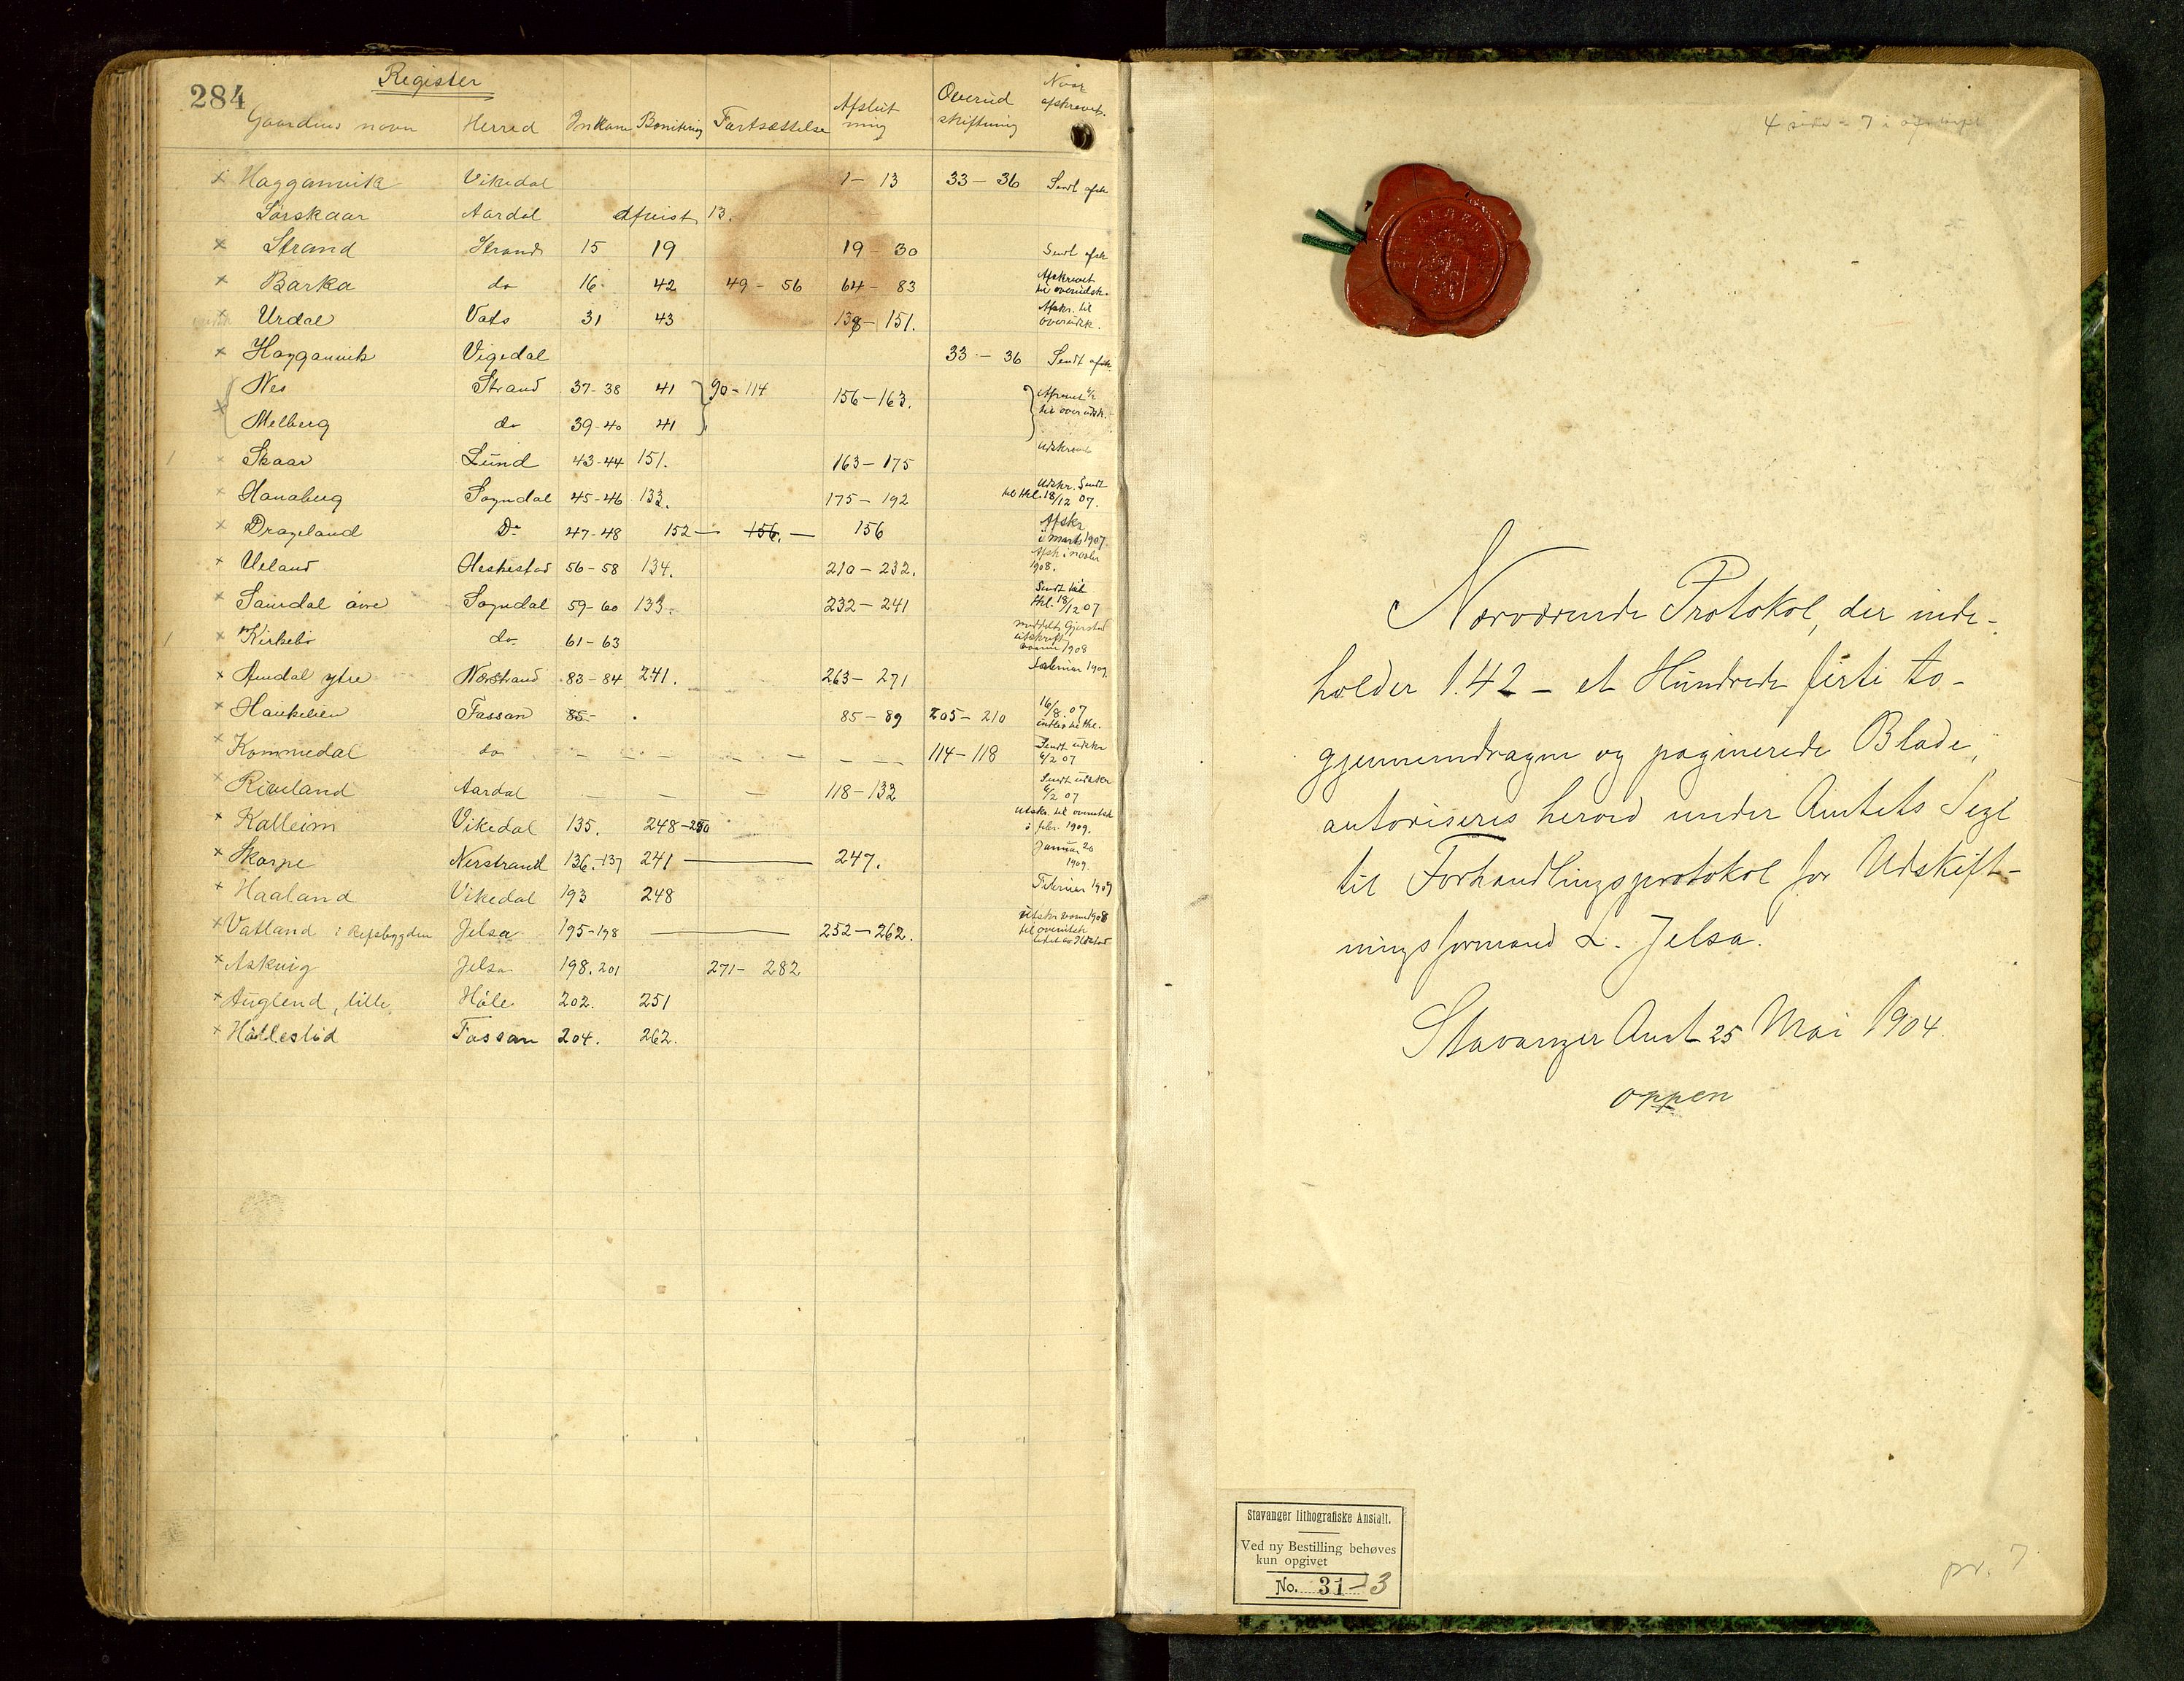 284
Register
Gaardens navn Herred Inkom Bonitering Fortsættelse Afslut ning Overud skiftning Naar afskrevet.
x Haggamvik Vikedal 1 – 13 33 – 36 Sendt afsk
Sørskaar Aardal afvist 13.
x Strand Strand 15 19 19 – 30 Sendt afsk
x Barka do 16 42 49 – 56 64 – 83 Afskrevet til overudsk.
x Urdal Vats 31 43 138 – 151. Afskr. til overudsk.
x Haggamvik Vigedal 33 – 36 Sendt afsk.
Nes Strand 37-38 41 90 – 114 156 – 163. til overudsk.
x Melberg do 39-40 41
x Skaar Lund 43-44 151. 163 – 175 Udskrevet
x Hanaberg Sogndal 45-46 133. 175 – 192 Udskr. Sendt til thl. 18/12 07.
x Drageland Do 47-48 152 — 156. — 156 Afskr i marts 1907.
x Ueland Heskestad 56-58 134. 210 – 232. Afsk i 1908.
x Sandal øvre Sogndal 59-60 133. 232 – 241 Sendt til thl. 18/12 07
x Kirkebø do 61-63 Gjerstad utskrift 1908
x Amdal ytre Nerstrand 83-84 241. 263 – 271 Februar 1909.
x Haukelien Fossan 85- 85 – 89 205 – 210 16/8 07
x Kommedal do 114 – 118 Sendt udskr 6/2 07
x Riveland Aardal 118 – 132 Sendt udskr 6/2 07
x Kalleim Vikedal 135. 248 – 250 Utskr. til overutsk i febr. 1909.
x Skorpe Nerstrand 136-137 241 — 247. Januar 20 1909
x Haaland Vikedal 193 248 Februar 1909
x Vatland i Refsbygden Jelsa 195-198 — 252 – 262. 1908 til overutsk
x Askvig Jelsa 198.201 271 – 282
x Auglend, lille Høle 202. 251
x Høllesliid Fossan 204. 262.
Nærværende Protokol, der inde-
holder 142 – et Hundrede firti to –
gjennemdragne og paginerede Blade,
autoriseres herved under Amtets Segl
til Forhandlingsprotokol for Udskift-
ningsformand L. Jelsa.
Stavanger Amt 25 Mai 1904.
Oppen
Stavanger lithografiske Anstalt.
Ved ny Bestilling behøves
kun opgivet
No. 31-3
pr. 7